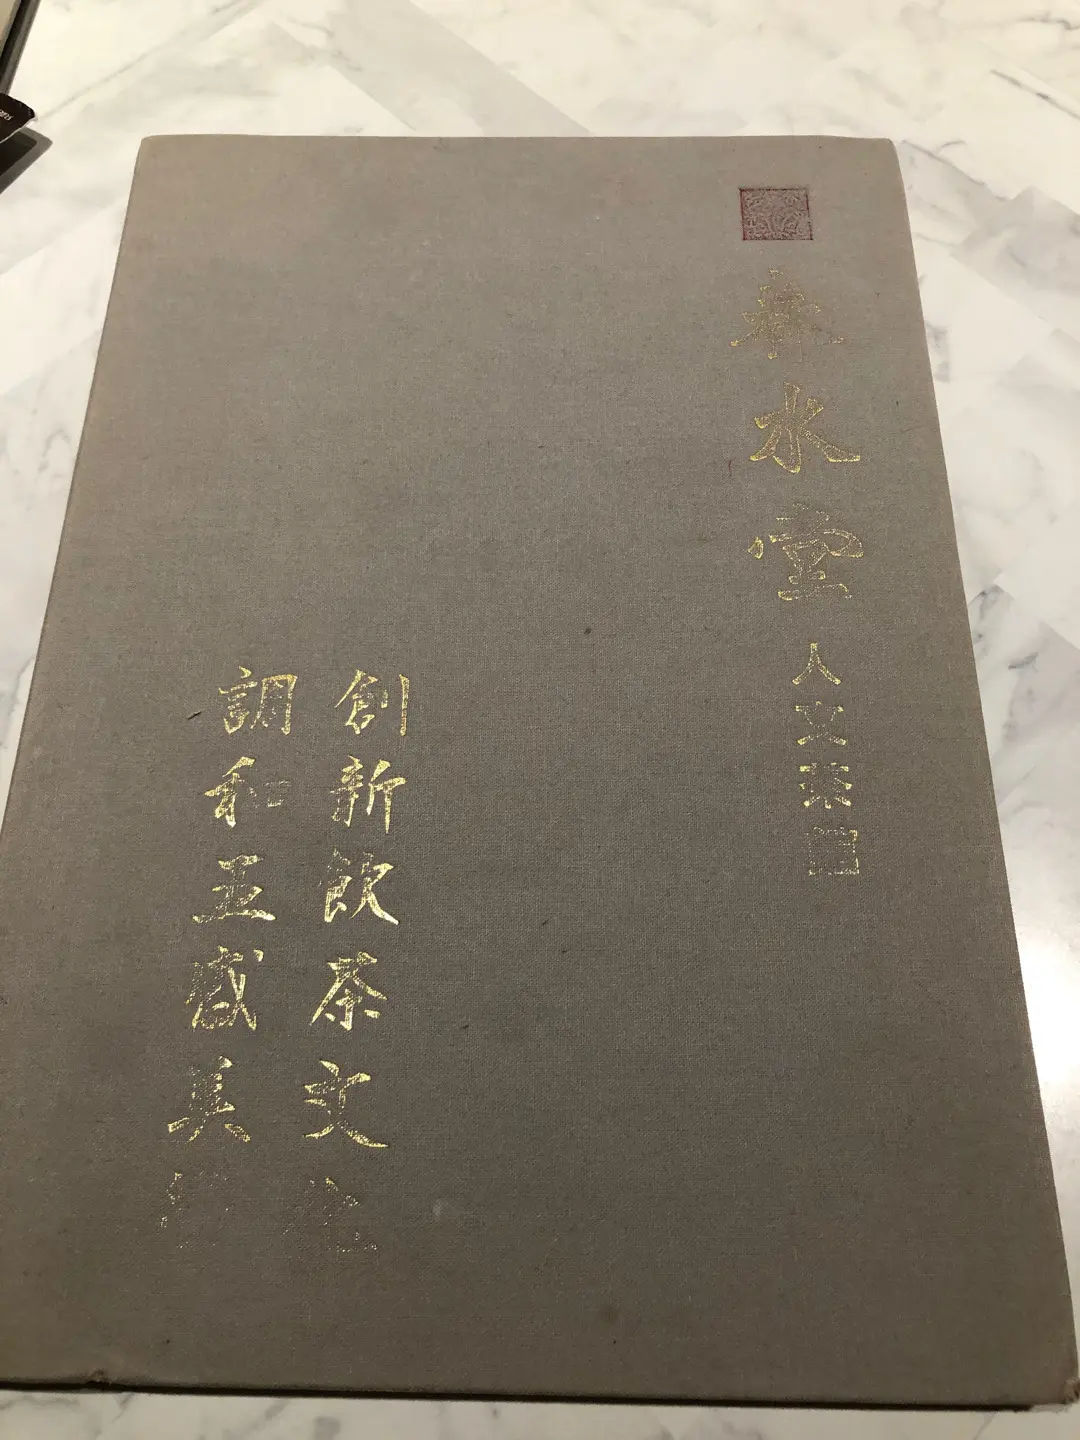 春水堂
人文茶館
創新飲茶文化
調和五感美